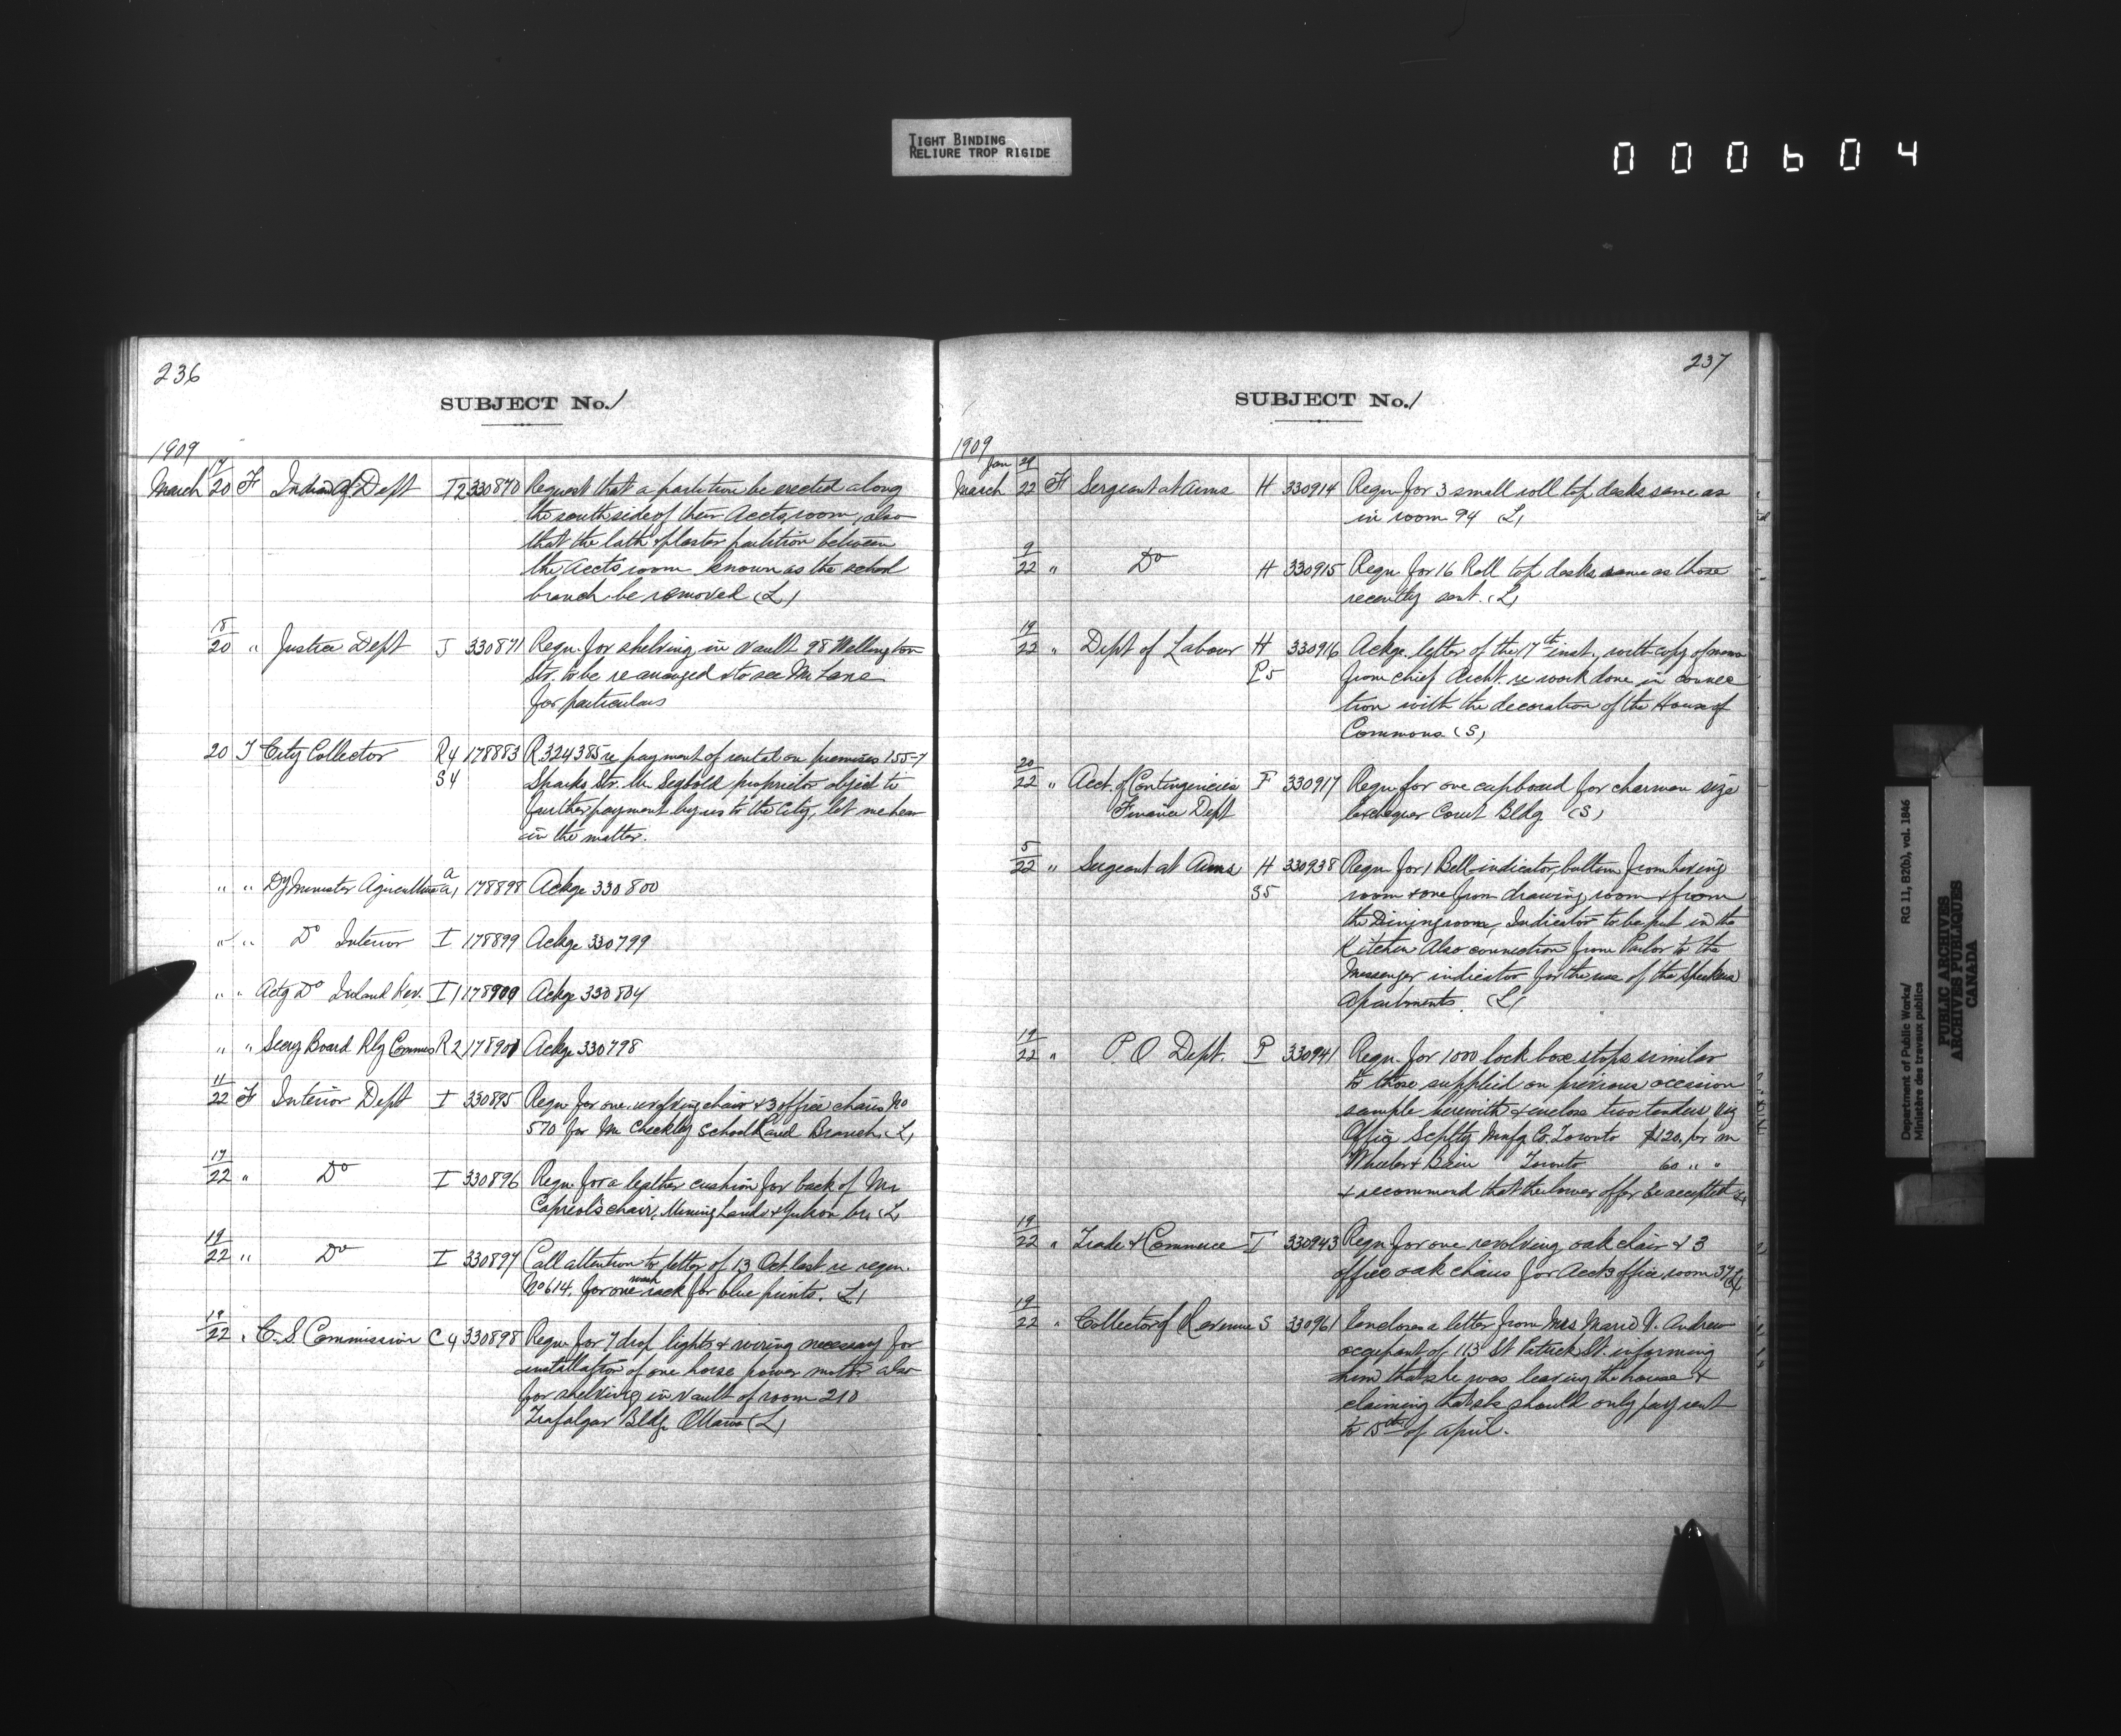 TIGHT BINDING
RELIURE TROP RIGIDE
000604
236
SUBJECT No. 1
1909
March 17/20 F Indian Aff Dept I2 330870 Request that a partition be erected along
the south side of their Accts room, also
that the lath & plaster partition between
the Accts room known as the school
branch be removed (L)
18/20 " Justice Dept J 330871 Reqn. for shelving in vault 98 Wellington
Str. to be rearranged & to see Mr Lane
for particulars
20 T City Collector R4 178883 R. 324385 re payment of rental on premises 155-7
S4 Sparks Str. Mr Seybold proprietor object to
further payment by us to the City, let me hear
in the matter.
" " Dy Minister Agriculture A1 178898 Ackge 330800
" " Do Interior I 178899 Ackge 330799
" " Actg Do Inland Rev. I1 178900 Ackge 330804
" " Secry Board Rly Commrs R2 178901 Ackge 330798
11/22 F Interior Dept I 330895 Reqn for one revolving chair & 3 office chairs No
570 for Mr Checkley School Land Branch. (L)
17/22 " Do I 330896 Reqn. for a leather cushion for back of Mr
Capreol's chair, Mining Lands & Yukon br. (L)
19/22 " Do I 330897 Call attention to letter of 13 Oct. last re reqn.
No 614, for one wash rack for blue prints. (L)
19/22 " C. S Commission C4 330898 Reqn. for 7 drop lights & wiring necessary for
installation of one horse power motor also
for shelving in vault of room 210
Trafalgar Bldg. Ottawa (L)
237
SUBJECT No. 1
1909
Jan 29
March 22 F Sergeant at Arms H 330914 Reqn for 3 small roll top desks same as
in room 94 (L)
9/22 " Do H 330915 Reqn. for 16 Roll top desks same as those
recently sent. (L)
19/22 " Dept of Labour H 330916 Ackge. letter of the 17th inst., with copy of memo
P5 from chief Archt. re work done in connec
tion with the decoration of the House of
Commons. (S)
20/22 " Acct. of Contingencies F 330917 Reqn for one cupboard for charman size
Finance Dept Exchequer Court Bldg (S)
5/22 " Sergeant at Arms H 330938 Reqn. for 1 Bell-indicator, button from
S5 room & one from drawing room & from
the Dining room, Indicator to be put in the
Kitchen Also connection from Parlor to the
Messenger indicator for the use of the Speakers
Apartments. (L)
19/22 " P. O. Dept. P 330941 Reqn. for 1000 lock box stops similar
to those supplied on previous occasion
sample herewith & enclose two tenders viz
Office Scplty Mnfg Co. Toronto $120. per m
Wheeler & Bain Toronto 60 " "
& recommend that the lower offer be accepted (L)
19/22 " Trade & Commerce T 330943 Reqn for one revolving oak chair & 3
office oak chairs for Accts office, room 37 (L)
19/22 " Collector of Revenue S 330961 Encloses a letter from Mrs Marie V. Andrew
occupant of 113 St Patrick St. informing
him that she was leaving the house &
claiming that she should only pay rent
to 15th of April.
Department of Public Works/ RG 11, B2(b), vol. 1846
Ministère des travaux publics
PUBLIC ARCHIVES
ARCHIVES PUBLIQUES
CANADA